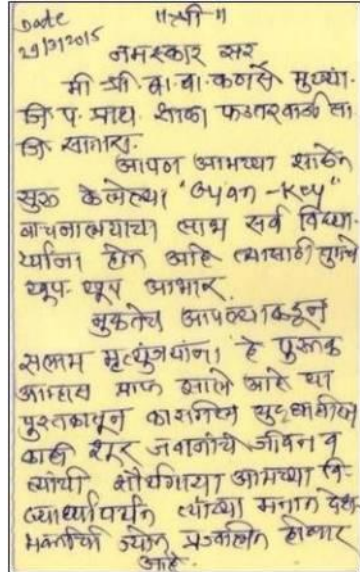 Date
29/7/2015
॥श्री॥
नमस्कार सर
मी श्री. वा. वा. कणसे मुख्या.
जि. प. प्राथ. शाळा फडतरवाडी ता.
जि. सातारा.
आपण आमच्या शाळेत
सुरु केलेल्या "Gyan-Key"
वाचनालयाचा लाभ सर्व विद्या-
र्थ्यांना होत आहे त्यासाठी तुमचे
खूप-खूप आभार.
नुकतेच आपल्याकडून
सलाम मृत्युंजयांना हे पुस्तक
आम्हास प्राप्त झाले आहे या
पुस्तकातून कारगिल युद्धातील
काही शूर जवानांचे जीवन व
त्यांची शौर्यगाथा आमच्या वि-
द्यार्थ्यांपर्यंत त्यांच्या मनात देश-
भक्तीची ज्योत प्रज्वलीत होणार
आहे.